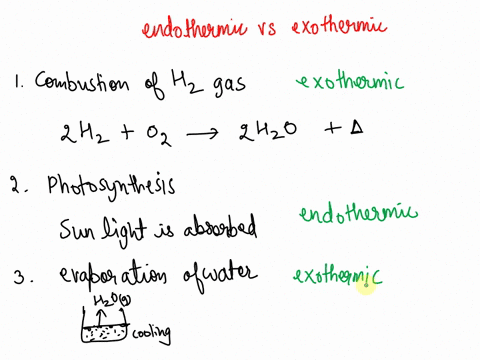 endothermic vs exothermic
1. Combustion of H₂ gas exothermic
2H₂ + O₂ → 2H₂O + Δ
2. Photosynthesis
Sun light is absorbed endothermic
3. evaporation of water exothermic
H₂O(g)
cooling